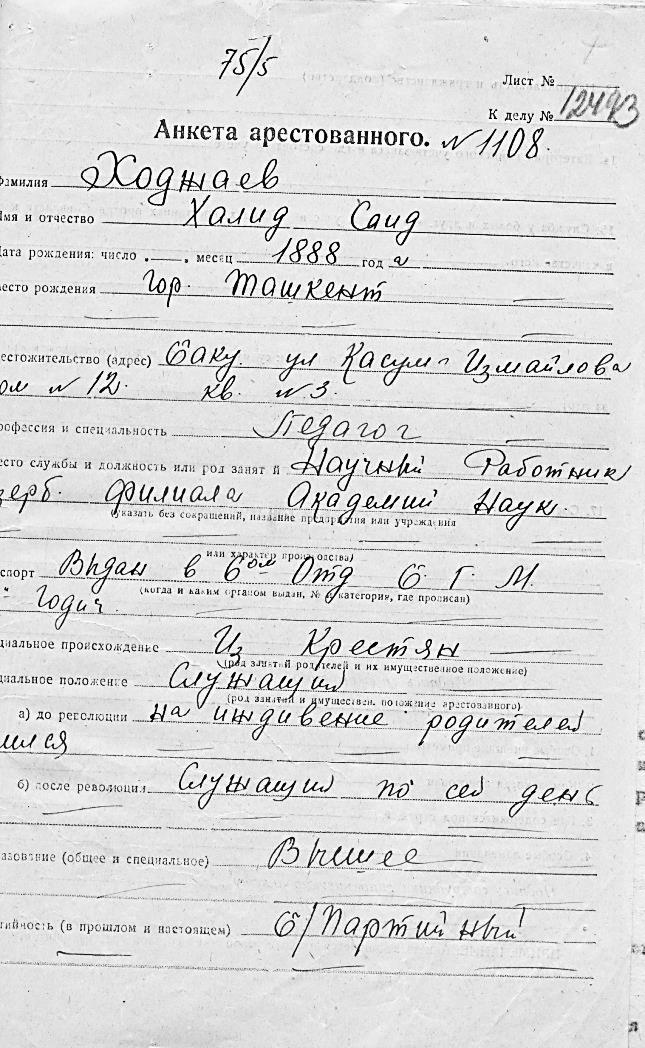 75/5
Лист №
К делу № 12493
Анкета арестованного. № 1108.
Фамилия Ходжаев
Имя и отчество Халид Саид
Дата рождения: число . , месяц 1888 год а
есто рождения гор. Ташкент
естожительство (адрес) Баку ул Касум Измайлова
ом № 12. кв. № 3.
рофессия и специальность Педагог
есто службы и должность или род занят й Научный Работник
зерб. филиала Академий Наук.
(указать без сокращений, название предприятия или учреждения
или характер производства)
спорт Выдан в 6ом Отд Б. Г. М.
(когда и каким органом выдан, № категория, где прописан)
годич.
циальное происхождение Из Крестян
(род занятий родителей и их имущественное положение)
циальное положение Служащий
(род занятий и имуществен. положение арестованного)
а) до революции на индивение родителей
ился
б) после революции Служащий по сей день
азование (общее и специальное) Высшее
тийность (в прошлом и настоящем) б/Партийный